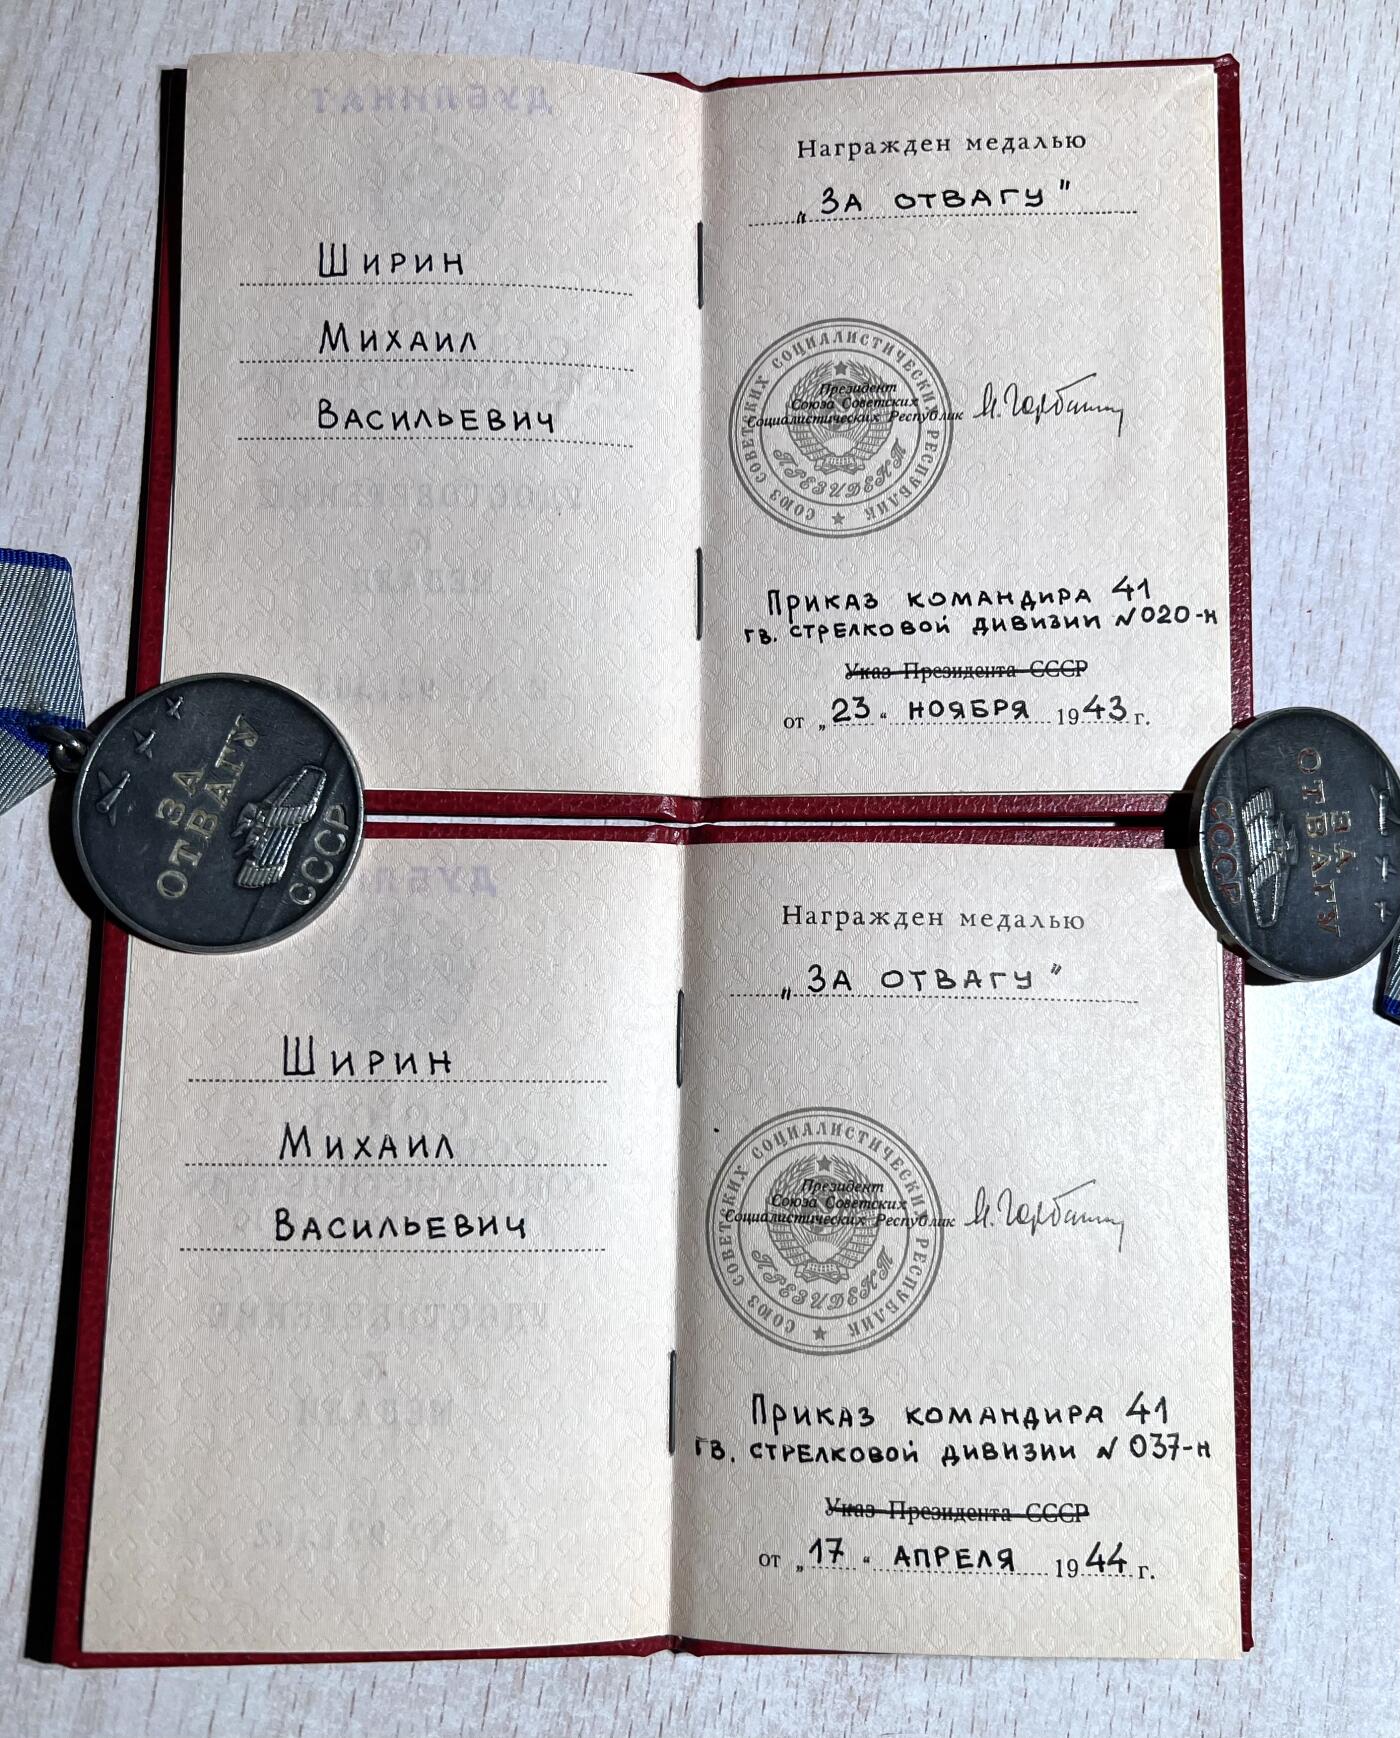 ДУБЛИКАТ
Ширин
Михаил
Васильевич
УДОСТОВЕРЕНИЕ
К
МЕДАЛИ
Награжден медалью
„ЗА ОТВАГУ"
СОЮЗ СОВЕТСКИХ СОЦИАЛИСТИЧЕСКИХ РЕСПУБЛИК
Президент
Союза Советских
Социалистических Республик М. Горбачев
ПРЕЗИДЕНТ
Приказ командира 41
гв. стрелковой дивизии №020-н
Указ Президента СССР
от „23" ноября 1943 г.
ЗА
ОТВАГУ
СССР
ЗА
ОТВАГУ
СССР
Ширин
Михаил
Васильевич
УДОСТОВЕРЕНИЕ
К
МЕДАЛИ
Награжден медалью
„ЗА ОТВАГУ"
СОЮЗ СОВЕТСКИХ СОЦИАЛИСТИЧЕСКИХ РЕСПУБЛИК
Президент
Союза Советских
Социалистических Республик М. Горбачев
ПРЕЗИДЕНТ
Приказ командира 41
гв. стрелковой дивизии № 037-н
Указ Президента СССР
от „17" апреля 1944 г.